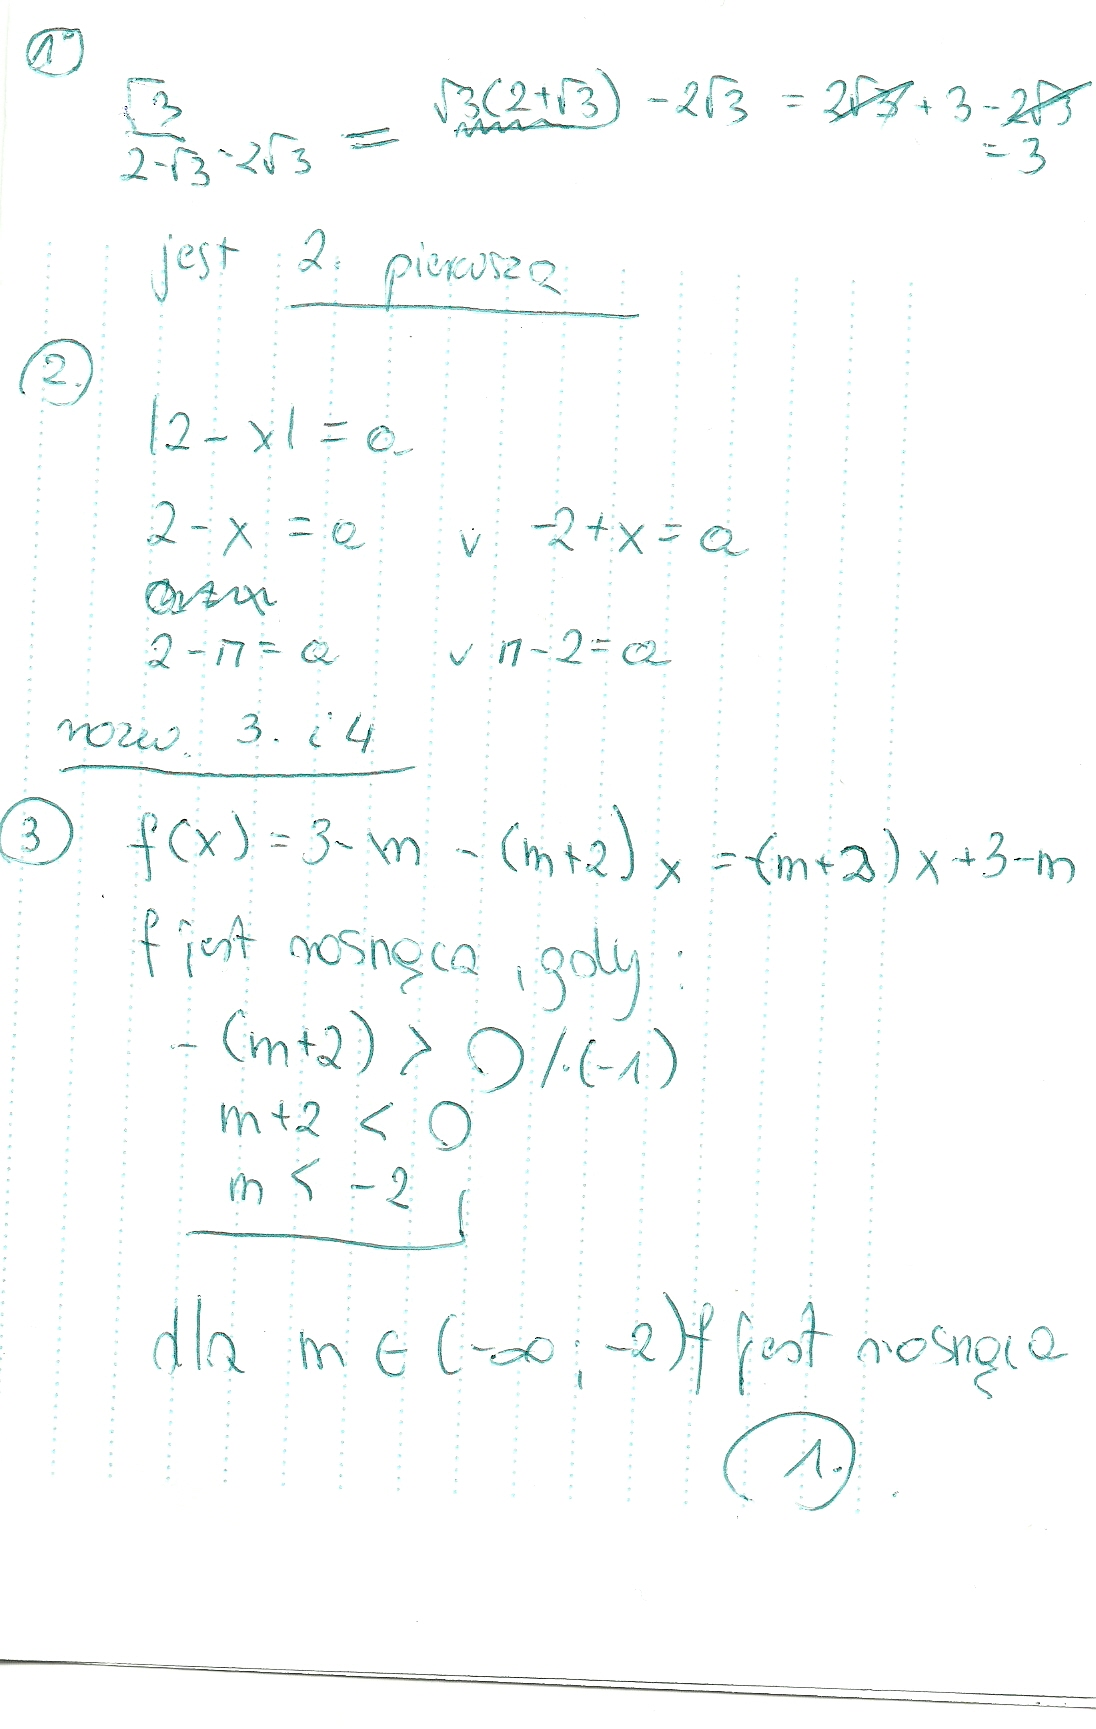 1°
√3/2-√3 - 2√3 = √3(2+√3) - 2√3 = 2√3 + 3 - 2√3
= 3
jest l. pierwszą
2.
|2-x| = a
2-x = a v -2+x = a
2-π = a v π-2 = a
rozw. 3. i 4
3 f(x) = 3-m - (m+2)x = -(m+2)x+3-m
f jest rosnąca, gdy:
- (m+2) > 0 /·(-1)
m+2 < 0
m < -2
dla m ∈ (-∞; -2) f jest rosnąca
1.